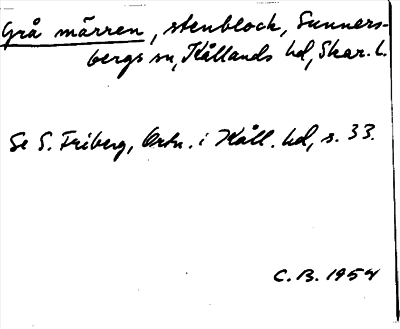 Grå märren, stenblock, Sunners-
bergs sn, Kållands hd, Skar. l.
Se S. Friberg, Ortn. i Kåll. hd, s. 33.
C.B. 1954